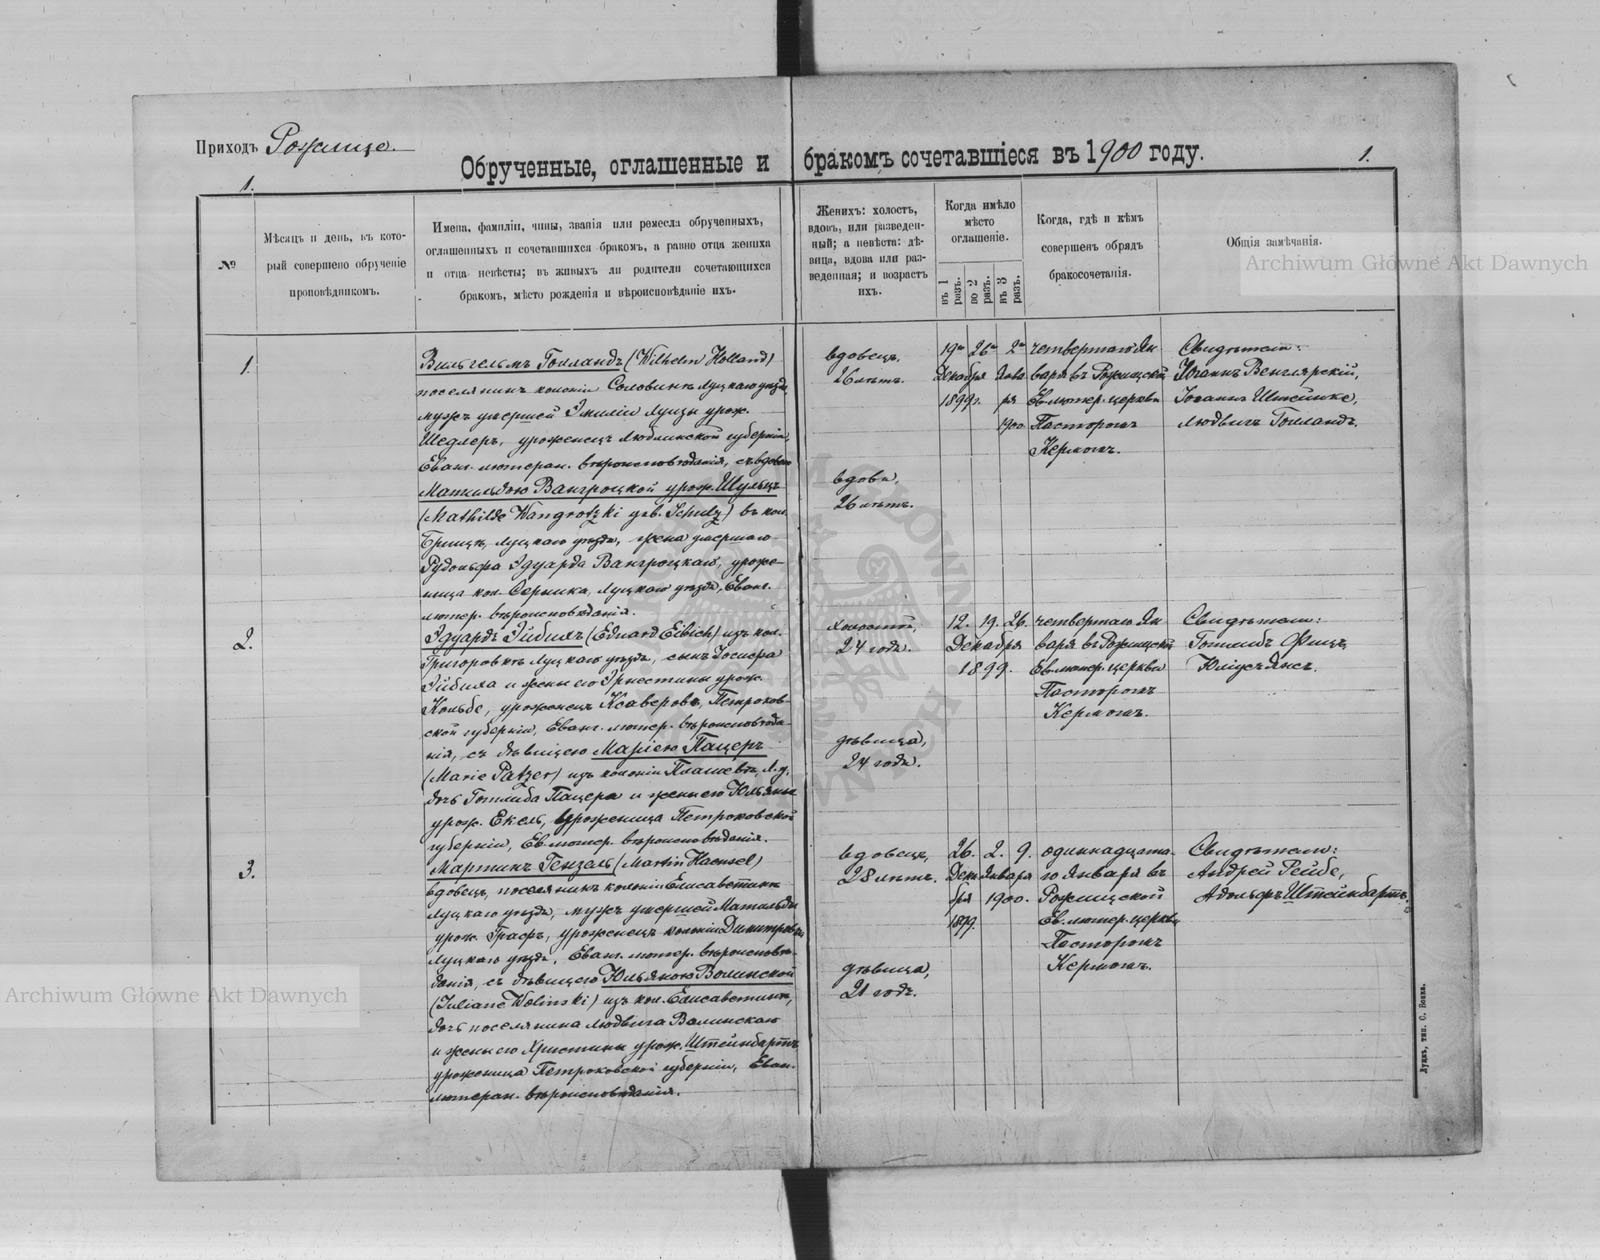 Приходъ Рожище.
Обрученные, оглашенные и бракомъ сочетавшіеся въ 1900 году.
1.
1.
№
Мѣсяцъ и день, въ кото-
рый совершено обрученіе
проповѣдникомъ.
Имена, фамиліи, чины, званія или ремесла обрученныхъ,
оглашенныхъ и сочетавшихся бракомъ, а равно отца жениха
и отца невѣсты; въ живыхъ ли родители сочетающихся
бракомъ, мѣсто рожденія и вѣроисповѣданіе ихъ.
Женихъ: холостъ,
вдовъ, или разведен-
ный; а невѣста: дѣ-
вица, вдова или раз-
веденная; и возрастъ
ихъ.
Когда имѣло
мѣсто
оглашеніе.
въ 1 разъ.
во 2 разъ.
въ 3 разъ.
Когда, гдѣ и кѣмъ
совершенъ обрядъ
бракосочетанія.
Общія замѣчанія.
Archiwum Główne Akt Dawnych
1.
Вильгельмъ Голландъ (Wilhelm Holland)
поселянинъ колоніи Соловинъ Луцкаго уѣзда,
мужъ умершей Эмиліи Луизы урож.
Шедлеръ, уроженецъ Люблинской губерніи,
Еванг. лютеран. вѣроисповѣданія, съ вдовою
Матильдою Вангроцкой урож. Шульцъ
(Mathilde Wangrotzki geb. Schulz) въ кол.
Луцкаго уѣзда, жена умершаго
Рудольфа Эдуарда Вангроцкаго, уроже-
ница кол. Серника, Луцкаго уѣзда, Еванг.
лютер. вѣроисповѣданія.
вдовецъ,
26 лѣтъ.
вдова,
26 лѣтъ.
19го 26го 2го
Декабря Янва
1899г. ря
1900
четвертаго Ян
варя въ Рожищской
Ев. лютер. церкви
Пасторомъ
Кермомъ.
Свидѣтели:
Іоганъ Венглярскій,
Іоганъ Штейнке,
Людвигъ Голландъ.
2.
Эдуардъ Эйбихъ (Eduard Eibich) изъ кол.
Григоровкѣ Луцкаго уѣзда, сынъ Іосифа
Эйбиха и жены его Эрнестины урож.
Кольбе, уроженецъ Ксаверовъ, Петроков-
ской губерніи, Еванг. лютер. вѣроисповѣда-
нія, съ дѣвицею Маріею Пацеръ
(Marie Patzer) изъ колоніи Плашевъ, Л. у.
дочь Готлиба Пацера и жены его Юльяны
урож. Екель, уроженица Петроковской
губерніи, Ев. лютер. вѣроисповѣданія.
холостъ,
24 года.
дѣвица,
24 года.
12. 19. 26.
Декабря
1899.
четвертаго Ян
варя въ Рожищской
Ев. лютер. церкви
Пасторомъ
Кермомъ.
Свидѣтели:
Готлибъ Фицъ,
Юліусъ Янсъ.
3.
Мартинъ Гензель (Martin Haensel)
вдовецъ, поселянинъ колоніи Елисаветинъ
Луцкаго уѣзда, мужъ умершей Матильды
урож. Графъ, уроженецъ колоніи Димитровки
Луцкаго уѣзда, Еванг. лютер. вѣроисповѣ-
данія, съ дѣвицею Юльяною Волинской
(Juliane Wolinski) изъ кол. Елисаветинъ,
дочь поселянина Людвига Волинскаго
и жены его Христины урож. Штейнбартъ
уроженица Петроковской губерніи, Еван.
лютеран. вѣроисповѣданія.
вдовецъ,
28 лѣтъ.
дѣвица,
21 годъ.
26. 2. 9.
Дека Января
бря 1900.
1899.
одиннадцата-
го Января въ
Рожищской
Ев. лютер. церкви
Пасторомъ
Кермомъ.
Свидѣтели:
Андрей Рейбе,
Адольфъ Штейнбартъ.
Archiwum Główne Akt Dawnych
Луцкъ, тип. С. Бонка.